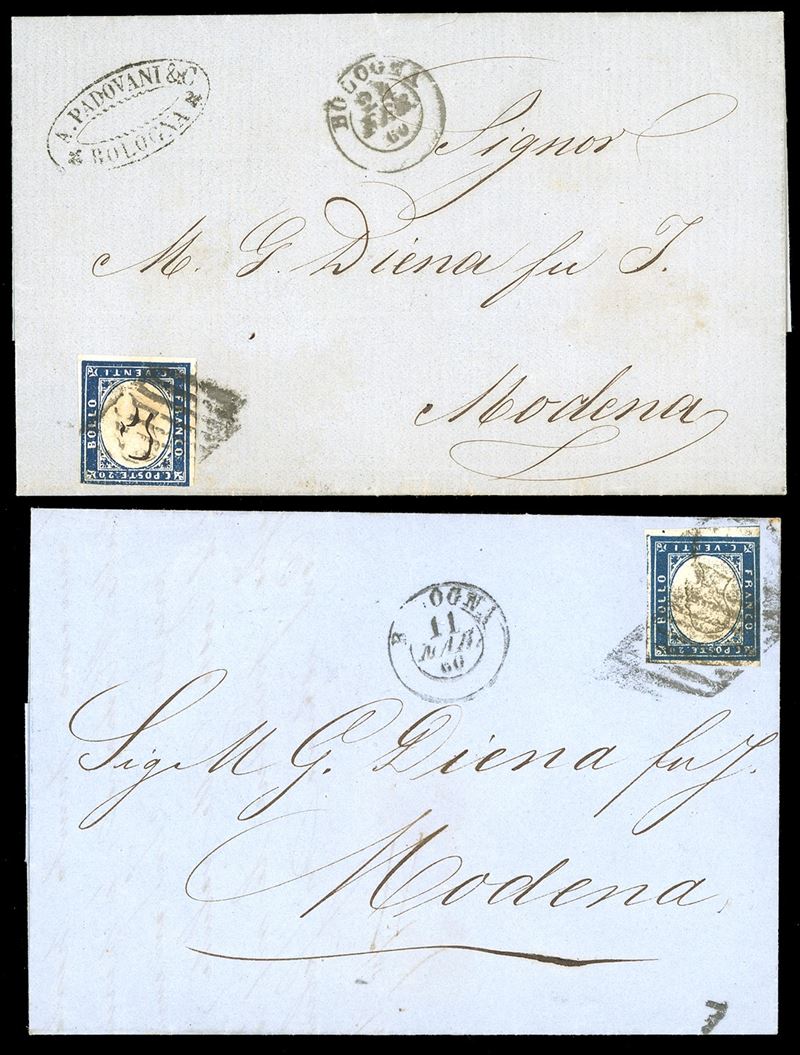 A. PADOVANI & C
BOLOGNA
BOLOGNA
MAR
60
Signor
M. G. Diena fu J.
Modena
C. VENTI
BOLLO
FRANCO
C. POSTE. 20
OGNA
11
MAR
60
C. VENTI
BOLLO
FRANCO
C. POSTE. 20
Sig M G. Diena fu J.
Modena